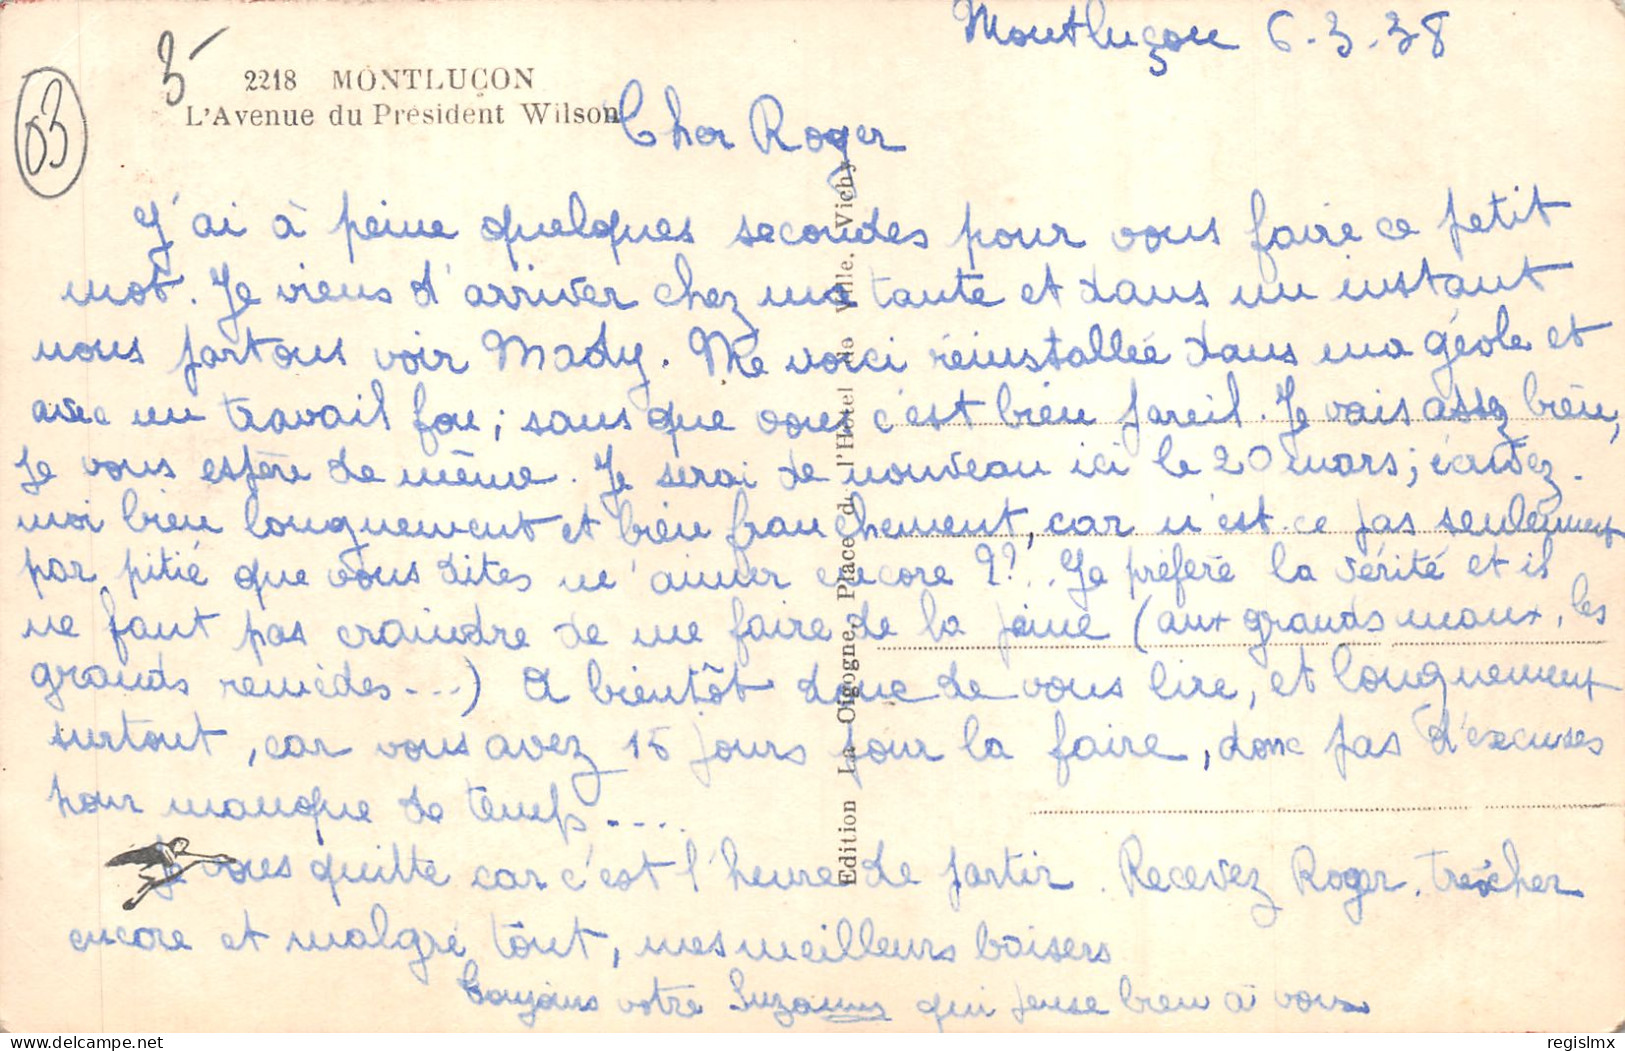 Montluçon 6.3.38
03
3-
2218 MONTLUÇON
L'Avenue du Président Wilson
Cher Roger
J'ai à peine quelques secondes pour vous faire ce petit
mot. Je viens d'arriver chez ma tante et dans un instant
nous partons voir Mady. Me voici réinstallée dans ma géole et
avec un travail fou ; sans que vous c'est bien pareil. Je vais assez bien,
Je vous espère de même. Je serai de nouveau ici le 20 mars ; écrivez-
moi bien longuement et bien franchement, car n'est-ce pas seulement
par pitié que vous dites m'aimer encore ??.. Je préfère la vérité et il
ne faut pas craindre de me faire de la peine (aux grands maux, les
grands remèdes...) A bientôt donc de vous lire, et longuement
surtout, car vous avez 15 jours pour la faire, donc pas d'excuses
pour manque de temps....
Je vous quitte car c'est l'heure de partir. Recevez Roger. très cher
encore et malgré tout, mes meilleurs baisers
Toujours votre Suzanne qui pense bien à vous
Edition La Cigogne, Place de l'Hôtel de Ville. Vichy
regislmx